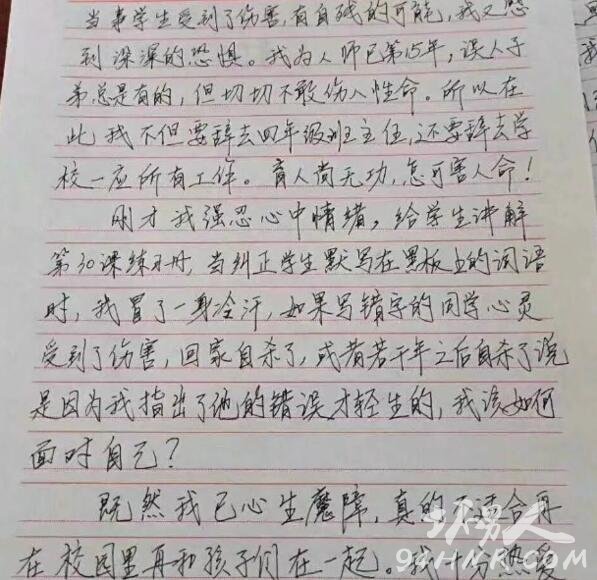 当事学生受到了伤害，有自残的可能，我又感
到深深的恐惧。我为人师已第15年，误人子
弟总是有的，但切切不敢伤人性命。所以在
此我不但要辞去四年级班主任，还要辞去学
校一应所有工作。育人尚无功，怎可害人命！
刚才我强忍心中情绪，给学生讲解
第30课练习册，当纠正学生默写在黑板上的词语
时，我冒了一身冷汗，如果写错字的同学心灵
受到了伤害，回家自杀了，或者若干年之后自杀了说
是因为我指出了他的错误才轻生的，我该如何
面对自己？
既然我已心生魔障，真的不适合再
在校园里再和孩子们在一起。我十分热爱